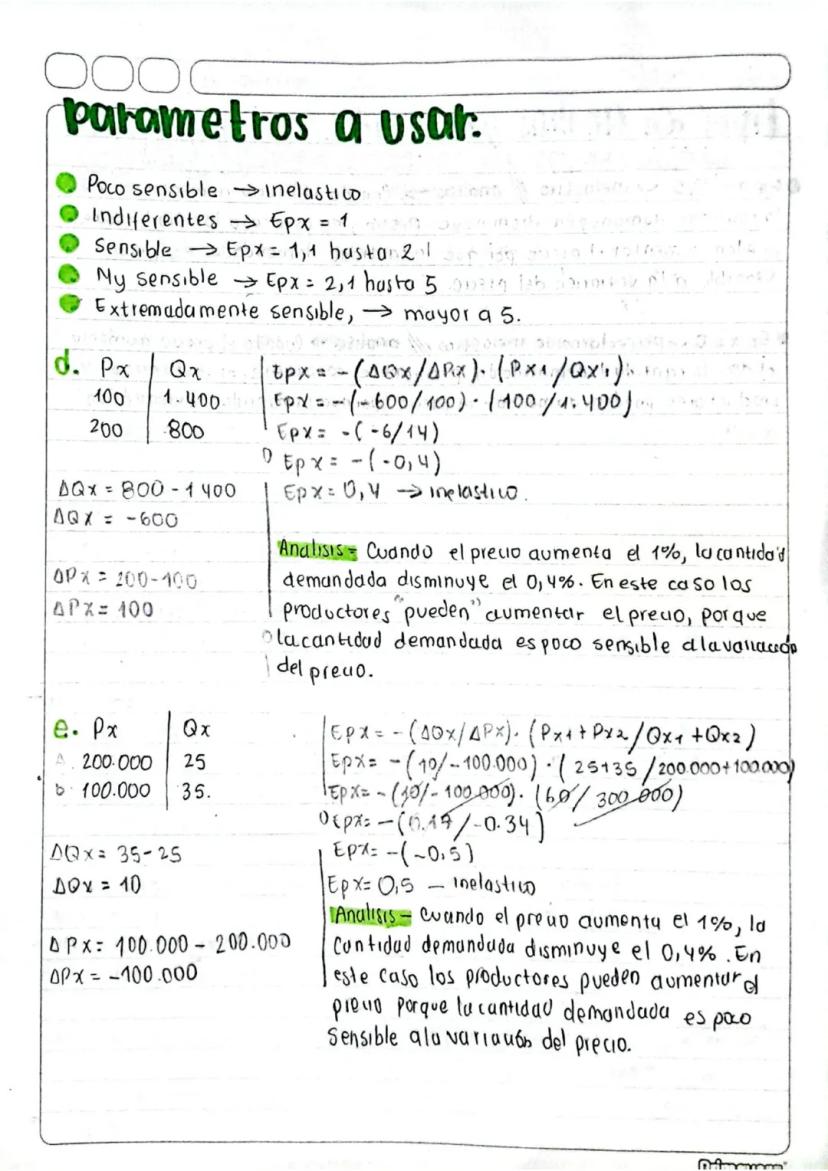 Parametros a usar.
Poco sensible → inelastico
Indiferentes → Epx = 1
Sensible → Epx = 1,1 hasta 2
My sensible → Epx = 2,1 hasta 5
Extremadamente sensible, → mayor a 5.
d. Px | Qx
100 | 1.400
200 | 800
ΔQx = 800 - 1400
ΔQx = -600
ΔPx = 200-100
ΔPx = 100
Epx = -(ΔQx/ΔPx)·(Px1/Qx1)
Epx = -(-600/100)·(100/1.400)
Epx = -(-6/14)
Epx = -(-0,4)
Epx = 0,4 → inelastico.
Analisis = Cuando el precio aumenta el 1%, la cantidad
demandada disminuye el 0,4%. En este caso los
productores "pueden" aumentar el precio, porque
la cantidad demandada es poco sensible a la variación
del precio.
e. Px | Qx
a. 200.000 | 25
b. 100.000 | 35.
ΔQx = 35-25
ΔQx = 10
ΔPx = 100.000 - 200.000
ΔPx = -100.000
Epx = -(ΔQx/ΔPx)·(Px1+Px2/Qx1+Qx2)
Epx = -(10/-100.000)·(25+35/200.000+100.000)
Epx = -(10/-100.000)·(60/300.000)
Epx = -(0.17/-0.34)
Epx = -(-0,5)
Epx = 0,5 - inelastico
Analisis = Cuando el precio aumenta el 1%, la
cantidad demandada disminuye el 0,4%. En
este caso los productores pueden aumentar el
precio porque la cantidad demandada es poco
sensible a la variación del precio.